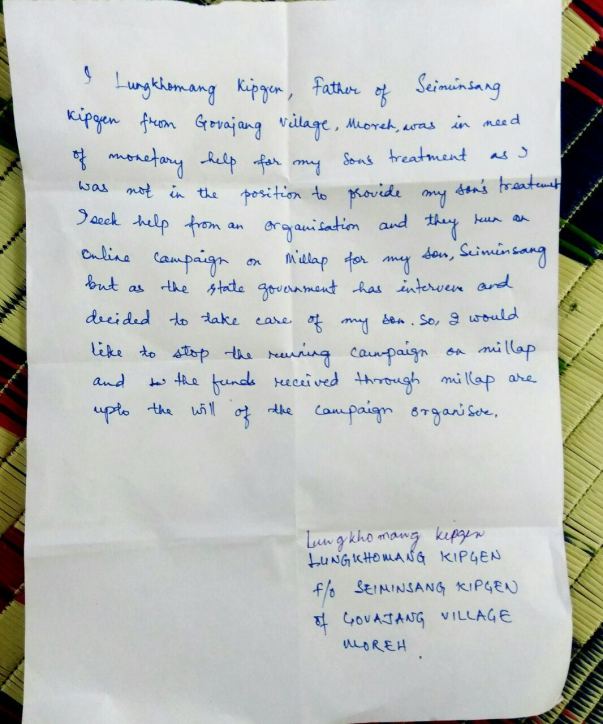 I Lungkhomang Kipgen, Father of Seiminsang
Kipgen from Govajang Village, Moreh, was in need
of monetary help for my sons treatment as I
was not in the position to provide my son's treatment
I seek help from an organisation and they run an
online campaign on Millap for my son, Seiminsang
but as the state government has intervene and
decided to take care of my son. So, I would
like to stop the running campaign on millap
and the funds received through millap are
upto the will of the campaign organiser.
Lungkhomang kipgen
LUNGKHOMANG KIPGEN
f/o SEIMINSANG KIPGEN
of GOVAJANG VILLAGE
MOREH.